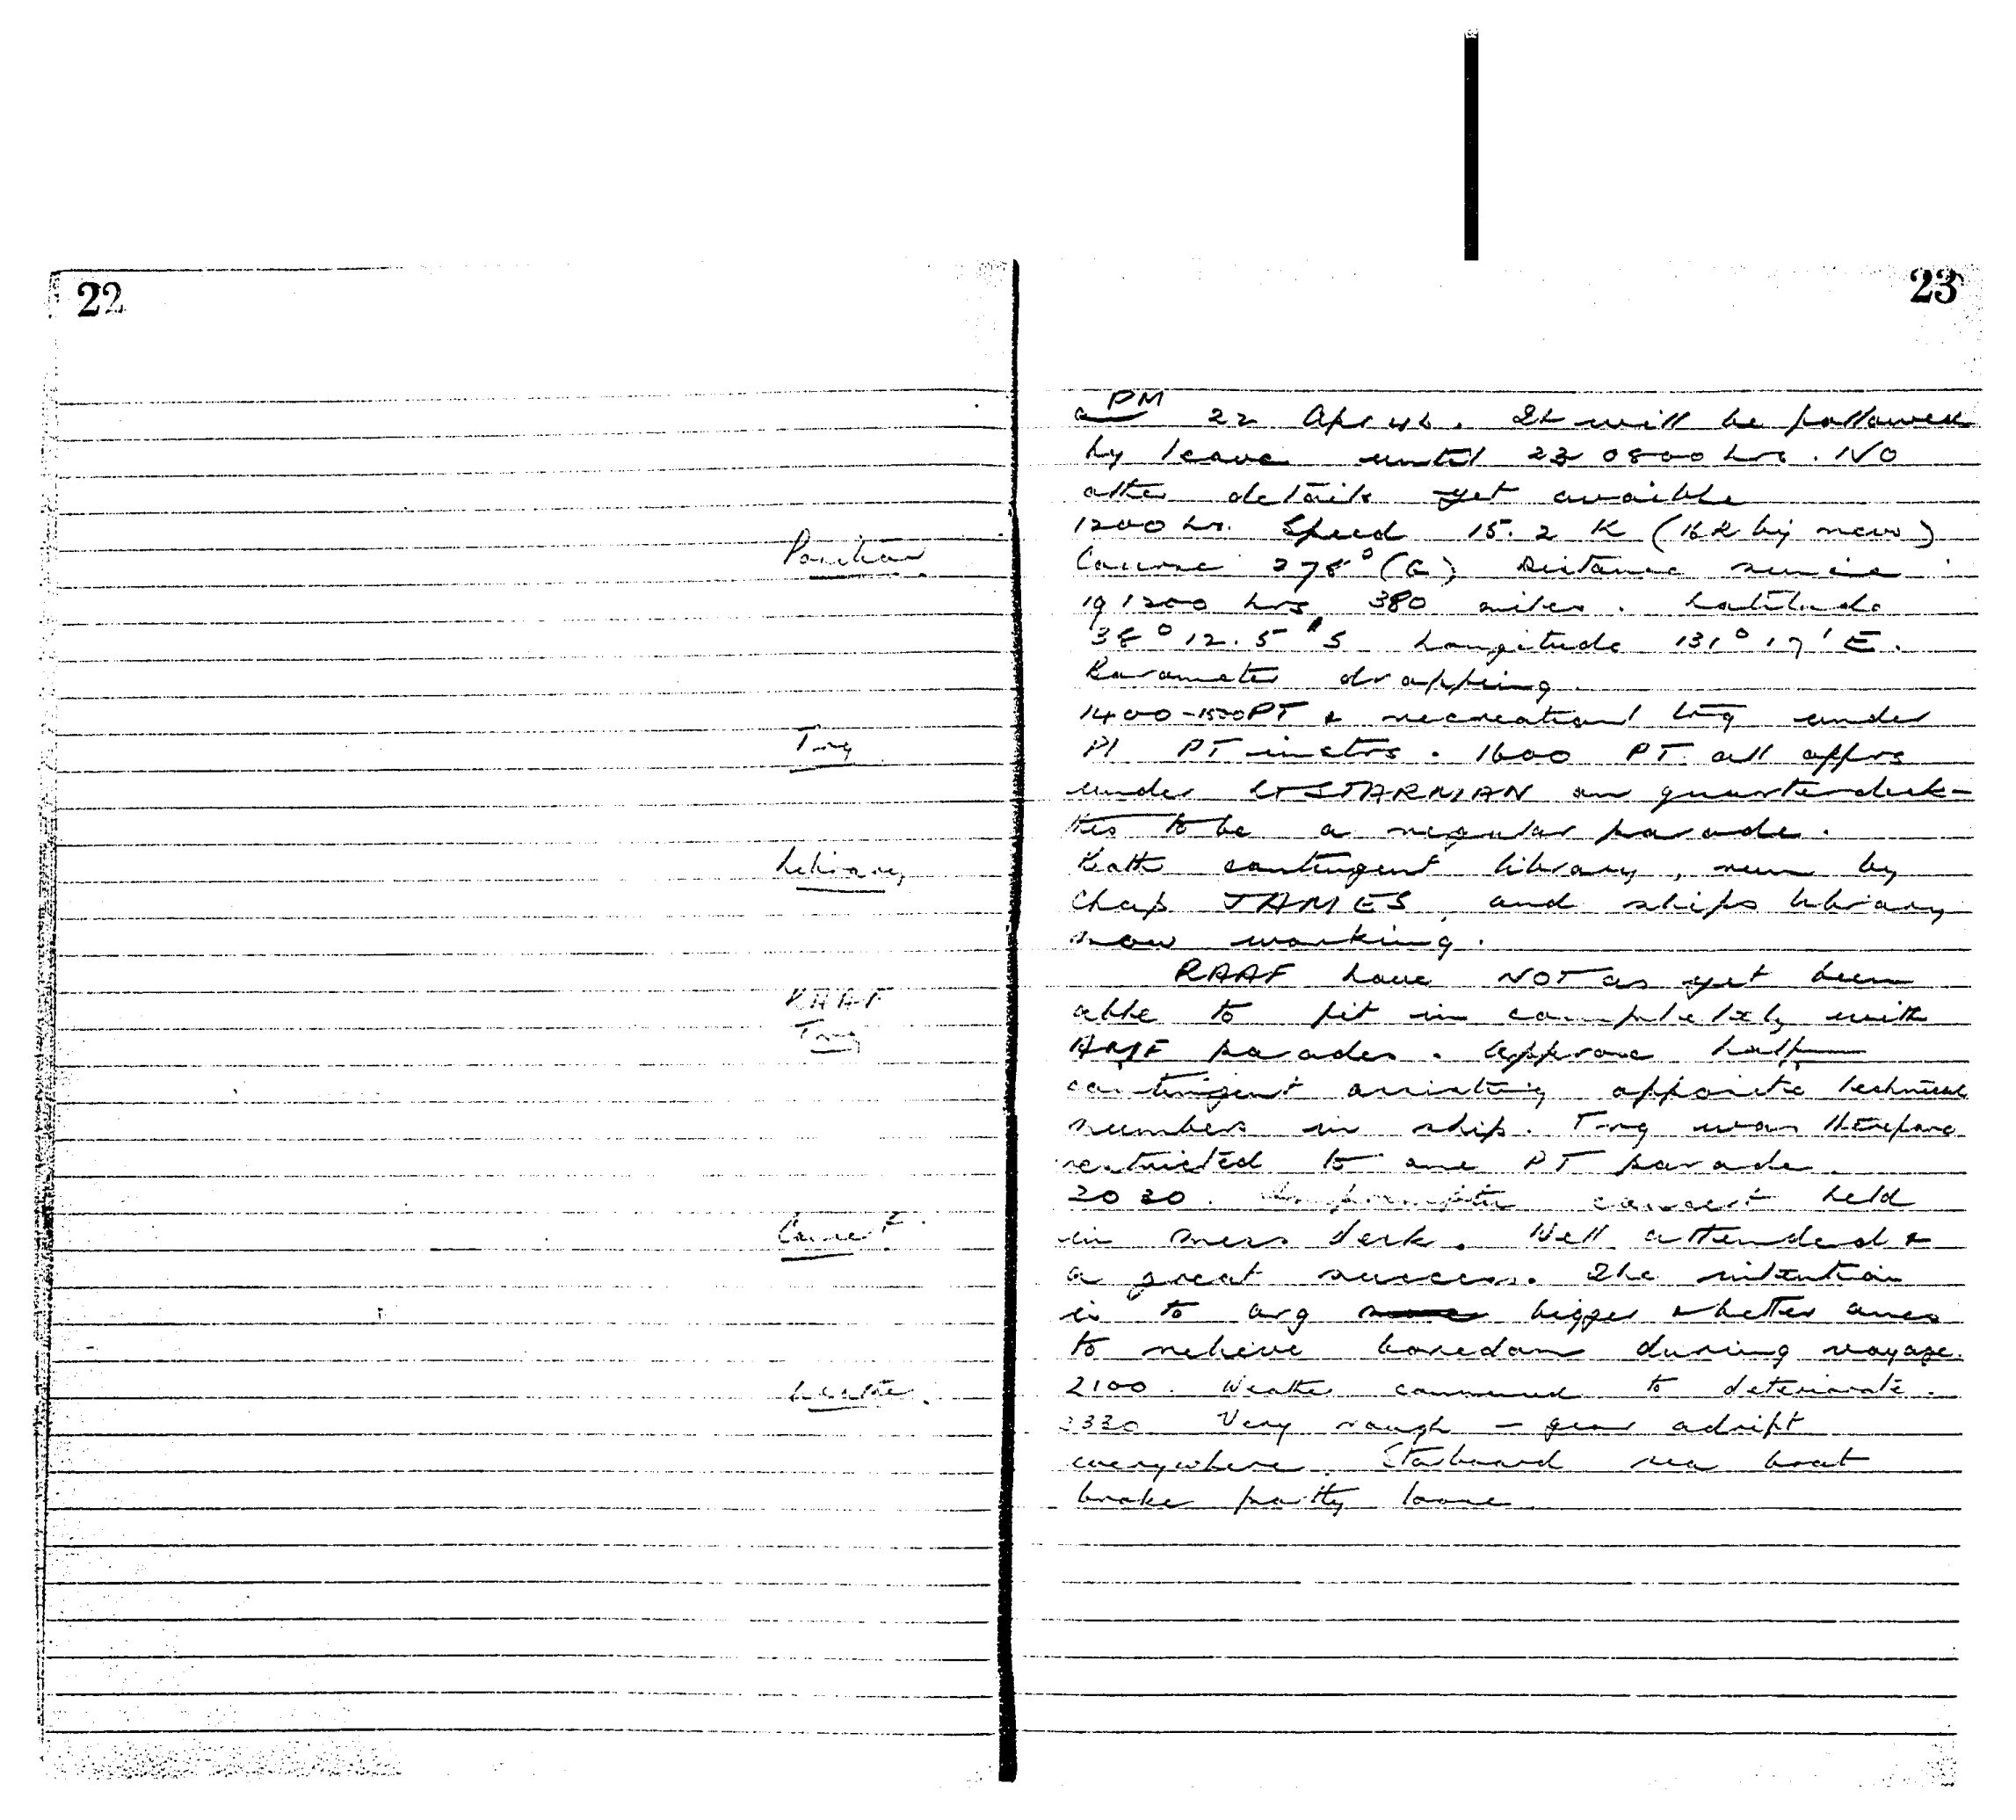 22
23
PM 22 Apr 46. It will be followed
by leave until 23 0800 hrs. NO
other details yet availble
1200 hrs. Speed 15.2 K (
Position
Course 278° (G) Distance since
19 1200 hrs 380 miles. Latitude
38° 12.5" S Longitude 131° 17' E.
Barometer dropping
1400-1500 PT & recreational trg under
Trg
Pl PT instrs. 1600 PT all offrs
under Lt STARMAN on quarterdeck -
this to be a regular parade.
Library
Both contingent library, run by
Chap JAMES, and ships library
now working.
RAAF have NOT as yet been
RAAF
able to fit in completely with
Trg
AMF parades. Approx half
contingent assisting opposite technical
numbers in ship. Trg was therefore
restricted to one PT parade.
2030. Impromptu concert held
Concert
in mess deck. Well attended &
a great success. The intention
is to org bigger & better ones
to relieve boredom during voyage.
2100. Weather commenced to deteriorate.
Weather.
2330 Very rough - gear adrift
everywhere. Starboard sea boat
broke partly loose